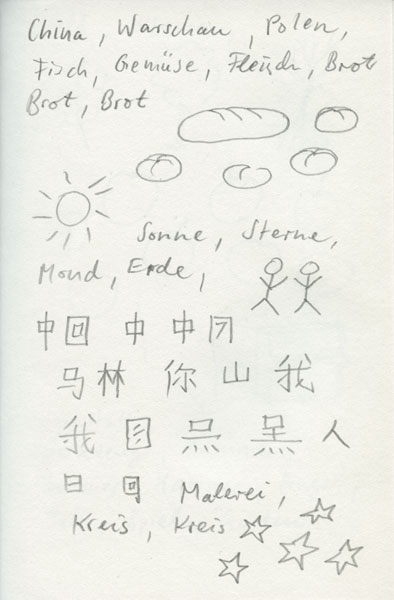 China, Warschau, Polen,
Fisch, Gemüse, Fleisch, Brot
Brot, Brot
Sonne, Sterne,
Mond, Erde,
中回 中 中
马林 你 山 我
我 人
日 回 Malerei,
Kreis, Kreis